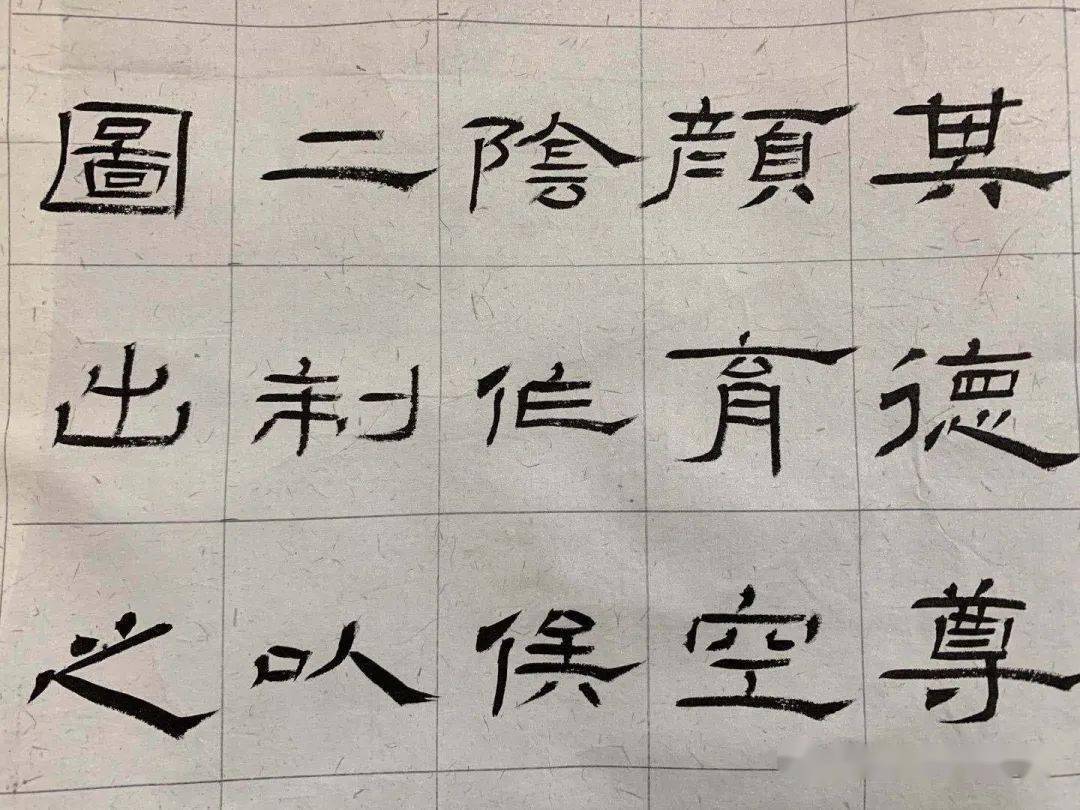 其德尊
顏育空
陰作俟
二制以
圖出之